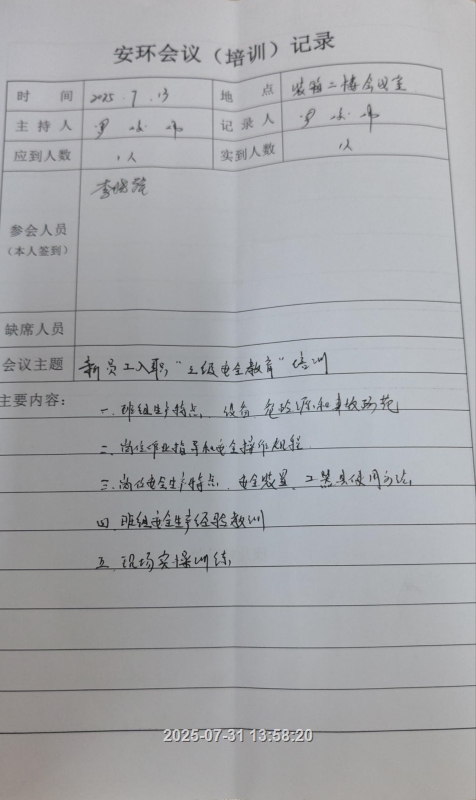 安环会议（培训）记录
时 间 2025.7.13 地 点 装箱二楼会议室
主 持 人 罗 记 录 人 罗
应到人数 1人 实到人数 1人
参会人员
（本人签到）
李
缺席人员
会议主题 新员工入职"三级安全教育"培训
主要内容：
一. 班组生产特点、设备、危险源和事故防范
二. 岗位作业指导和安全操作规程
三. 岗位安全生产特点、安全装置、工器具使用方法
四. 班组安全生产经验教训
五. 现场实操训练
2025-07-31 13:58:20